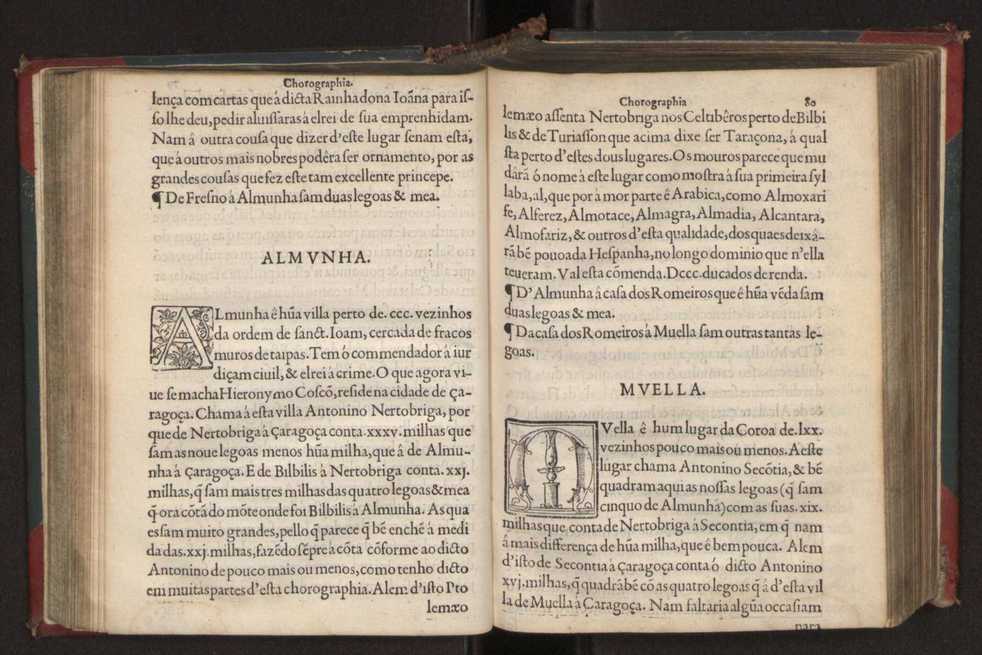 Chorographia.
lença com cartas que á dicta Rainha dona Ioãna para is-
so lhe deu, pedir aluissaras à elrei de sua emprenhidam.
Nam á outra cousa que dizer d'este lugar senam esta,
que à outros mais nobres podêra ser ornamento, por as
grandes cousas que fez este tam excellente principe.
¶ De Fresno à Almunha sam duas legoas & mea.
ALMVNHA.
ALmunha ê hũa villa perto de. ccc. vezinhos
da ordem de sanct. Ioam, cercada de fracos
muros de taipas. Tem ó commendador â iur
diçam ciuil, & elrei â crime. O que agora vi-
ue se macha Hieronymo Coscõ, reside na cidade de Ça-
ragoça. Chama à esta villa Antonino Nertobriga, por
que de Nertobriga à Çaragoça conta. xxxv. milhas que
sam as noue legoas menos hũa milha, que â de Almu-
nha à Çaragoça. E de Bilbilis à Nertobriga conta. xxj.
milhas, q̃ sam mais tres milhas das quatro legoas & mea
q̃ ora cõtã do mõte onde foi Bilbilis à Almunha. As qua
es sam muito grandes, pello q̃ parece q̃ bẽ enchẽ â medi
da das. xxj. milhas, fazẽdo sẽpre â cõta cõforme ao dicto
Antonino de pouco mais ou menos, como tenho dicto
em muitas partes d'esta chorographia. Alem d'isto Pto
lemæo
Chorographia 80
lemæo assenta Nertobriga nos Celtibêros perto de Bilbi
lis & de Turiasson que acima dixe ser Taraçona, à qual
sta perto d'estes dous lugares. Os mouros parece que mu
dârã ó nome à este lugar como mostra â sua primeira syl
laba, al, que por â mor parte ê Arabica, como Almoxari
fe, Alferez, Almotace, Almagra, Almadia, Alcantara,
Almofariz, & outros d'esta qualidade, dos quaes deixâ-
rã bẽ pouoada Hespanha, no longo dominio que n'ella
teueram. Val esta cõmenda. Dccc. ducados de renda.
¶ D'Almunha â casa dos Romeiros que ê hũa vẽda sam
duas legoas & mea.
¶ Da casa dos Romeiros à Muella sam outras tantas le-
goas.
MVELLA.
MVella ê hum lugar da Coroa de. lxx.
vezinhos pouco mais ou menos. A este
lugar chama Antonino Secõtia, & bẽ
quadram aqui as nossas legoas (q̃ sam
cinquo de Almunha) com as suas. xix.
milhas que. conta de Nertobriga à Secontia, em q̃ nam
â mais differença de hũa milha, que ê bem pouca. Alem
d'isto de Secontia à Çaragoça conta ó dicto Antonino
xvj. milhas, q̃ quadrã bẽ cõ as quatro legoas q̃ â d'esta vil
la de Muella à Çaragoça. Nam faltaria algũa occasiam
para